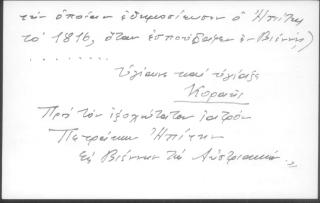 τὴν ὁποίαν ἐδημοσίευσεν ὁ Ἠπίτης
τὸ 1816, ὅταν ἐσπούδαζεν ἐν Βιέννῃ)
. . . . . . . . . . .
Ὑγίαινε καὶ ὑγίαζε
Κοραῆς
Πρὸς τὸν ἐξοχώτατον ἰατρὸν
Πετράκην Ἠπίτην
εἰς Βιέννην τῆς Αὐστριακῆς